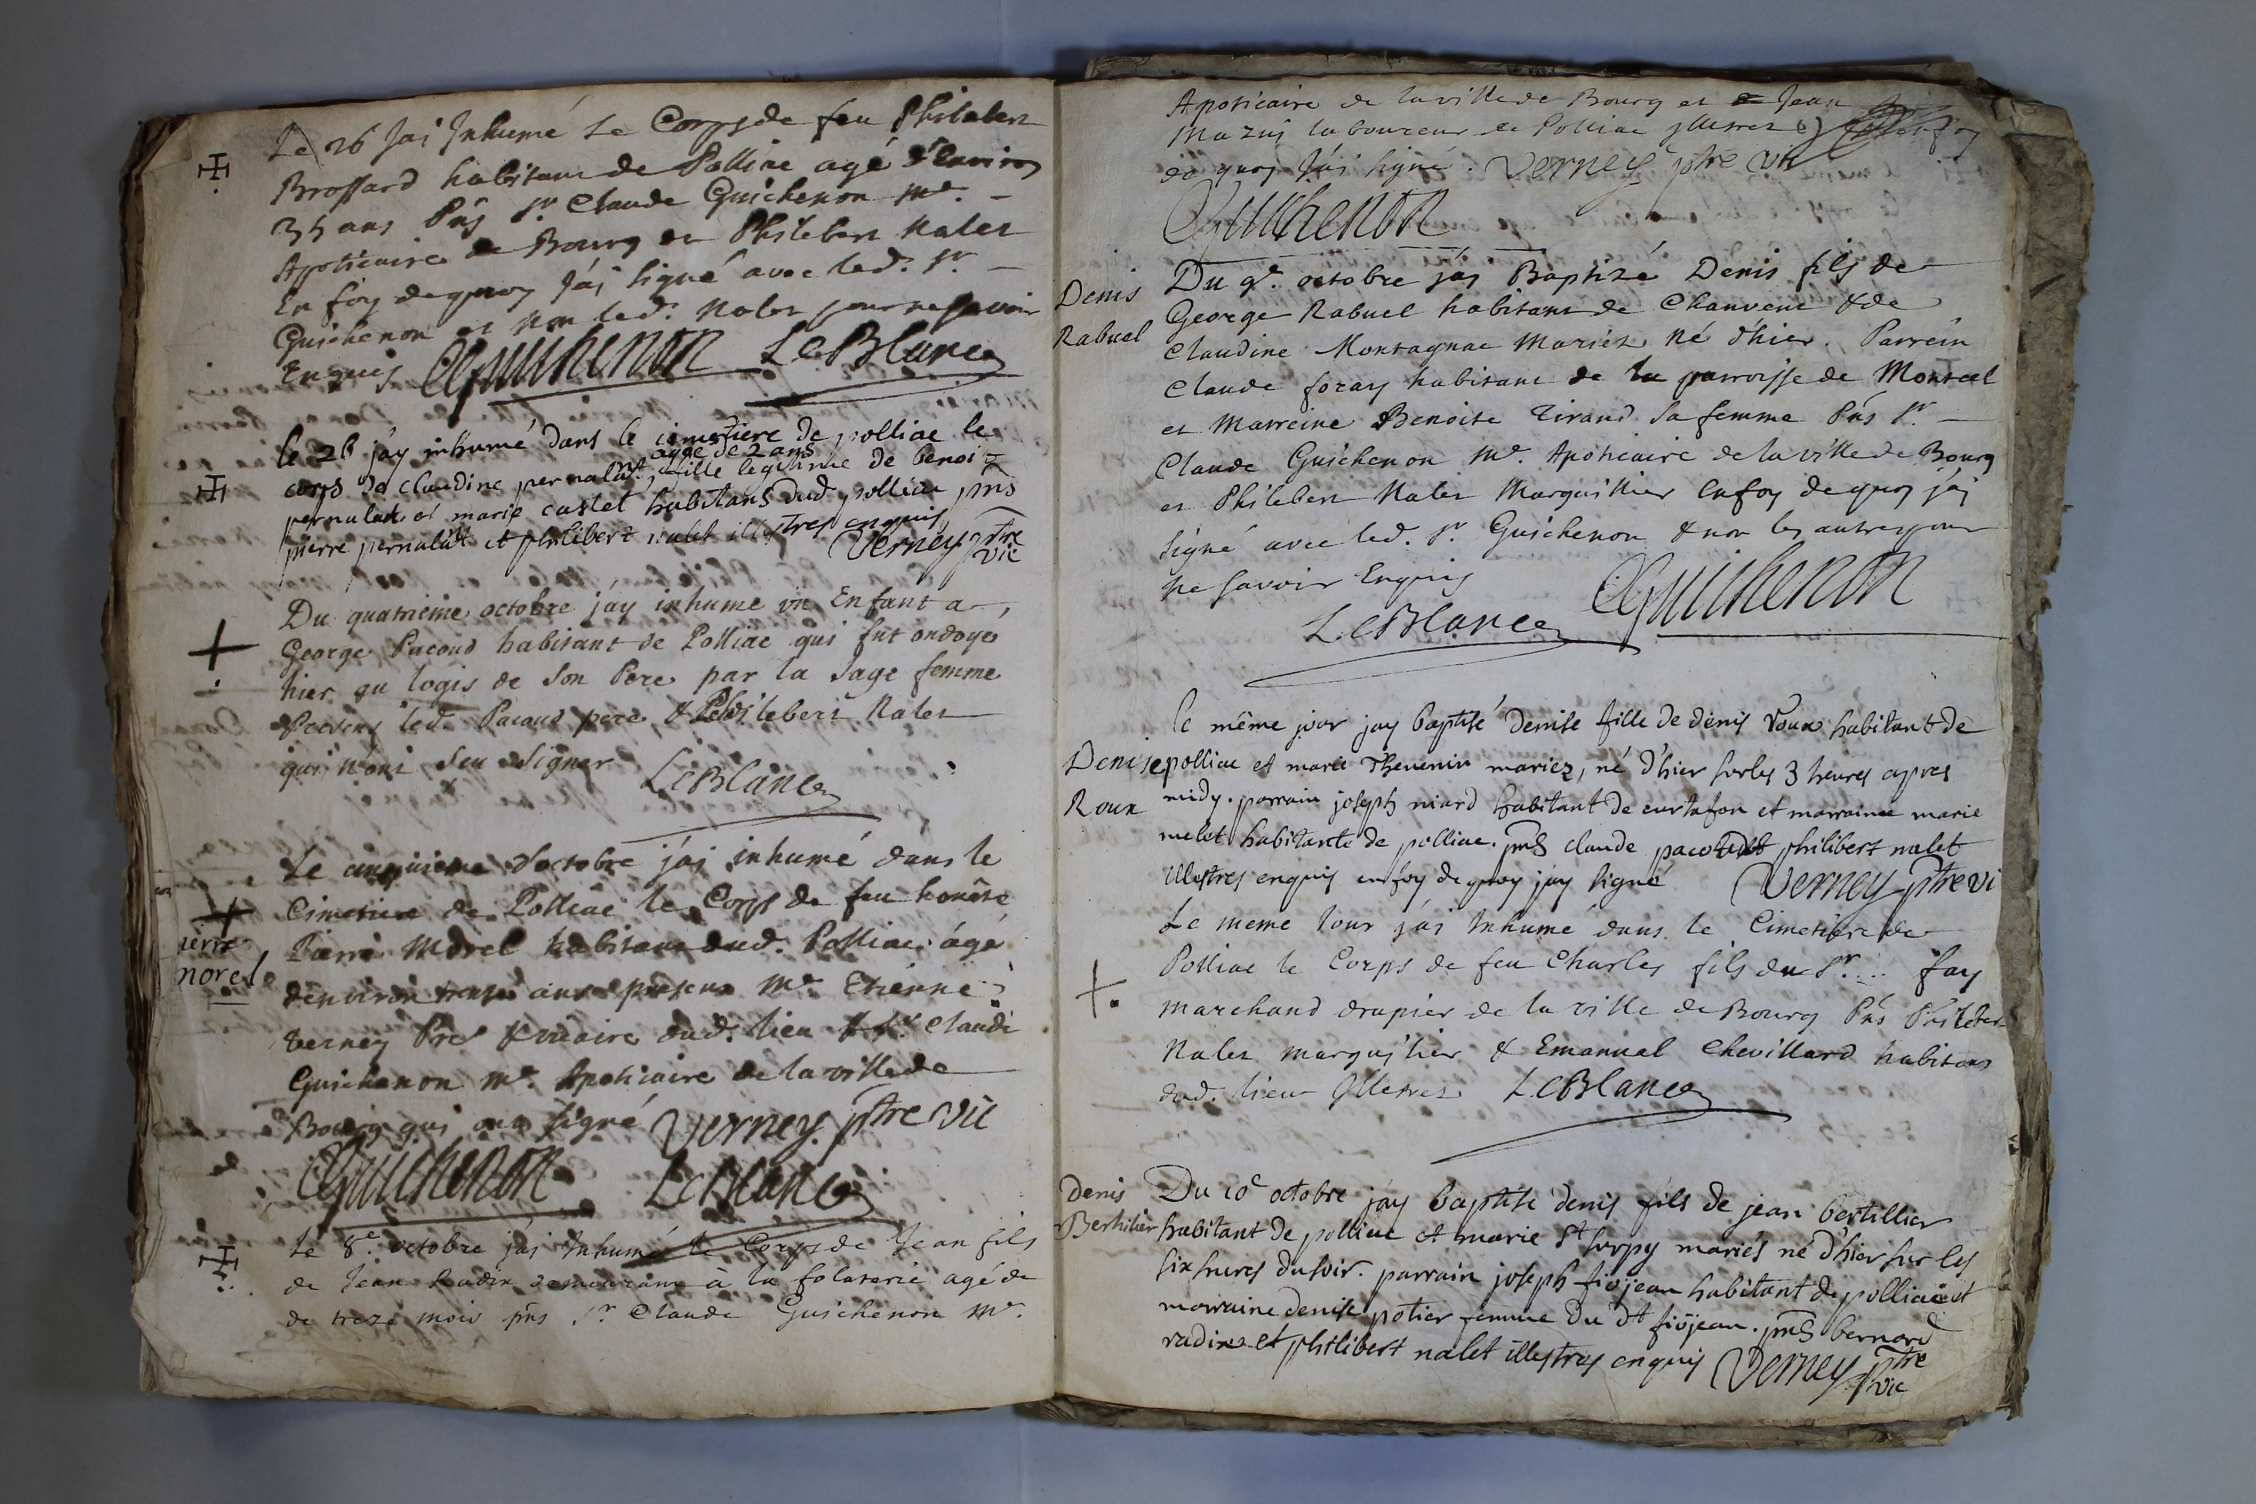 Le 26 Jai Inhumé Le Corps de feu Philebert
Brossard habitant de Polliac agé d'Environ
35 ans Pns Sr. Claude Guichenon Me. -
Apoticaire de Bourg et Philebert Nalet
En foy de quoy J'ai signé avec led. Sr. -
Guichenon et non led. Nalet pour ne savoir
Enquis CGuichenon LeBlanc
le 26 jay inhumé dans le cimetiere de polliac le
agée de 2 ans
corps de claudine pernalut, fille legitime de benoi=
pernulut et marie castet habitans dud. polliac pns
pierre pernalut et philibert nalet illestres enquis
Verney ptre
vic
Du quatrième octobre j'ay inhume un Enfant a
George Pacoud habitant de Polliac qui fut ondoyé
hier au logis de son Pere par la Sage femme
Presens led. Pacoud pere & Philebert Nalet
qui n'ont sçu signer LeBlanc
Le cinquieme d'octobre j'ai inhumé dans le
Cimetiere de Polliac le Corps de feu honête
ierre
norel
Pierre Morel habitant dud. Polliac agé
d'environ trente ans presens Me. Etienne
Verney Pre & vicaire dud. lieu & Sr. Claude
Guichenon Me. Apoticaire de la ville de
Bourg qui ont signé Verney ptre vic
CGuichenon LeBlanc
Le 8e. octobre j'ai Inhumé le Corps de Jean fils
de Jean Radix demeurant à la folaterie agé de
de treze mois pns Sr Claude Guichenon Me.
Apoticaire de la ville de Bourg et de Jean
Mazuj laboureur de Polliac jllestres En foy
de quoy J'ai signé. Verney ptre vic
CGuichenon
Denis
Rabuel
Du 9e. octobre j'ai Baptizé Denis fils de
George Rabuel habitant de Chanvent & de
Claudine Montagnac Mariéz Né d'hier. Parrein
Claude foray habitant de la parroisse de Montcet
et Marreine Benoite Tirand sa femme Pns Sr. -
Claude Guichenon Me. Apoticaire de la ville de Bourg
et Philebert Nalet Marguillier En foy de quoy j'ai
signé avec led. Sr. Guichenon & non les autres pour
ne savoir Enquis CGuichenon
LeBlanc
Denise
Roux
le même jour jay baptisé denise fille de denis Roux habitant de
polliac et marie Thevenin mariez, né d'hier sur les 3 heures apres
midy. parrain joseph niard habitant de curtafon et marraine marie
melet habitante de polliac. pns claude pacoud et philibert nalet
illestres enquis en foy de quoy jay signé Verney ptre vi
Le meme Jour j'ai Inhumé dans le Cimetière de
Polliac le Corps de feu Charles fils du Sr. .. fay
marchand drapier de la ville de Bourg Pns Philebert
Nalet marguilier & Emanuel Chevillard habitans
dud. lieu Jllestres LeBlanc
Denis
Berthilier
Du 10e octobre jay baptisé denis fils de jean bertillier
habitant de polliac et marie St surpy mariés né d'hier sur les
six hures du soir. parrain joseph fiojean habitant de polliac et
marraine denise potier femme du dt fiojean. pns bernard
radix et philibert nalet illestres enquis Verney ptre
vic